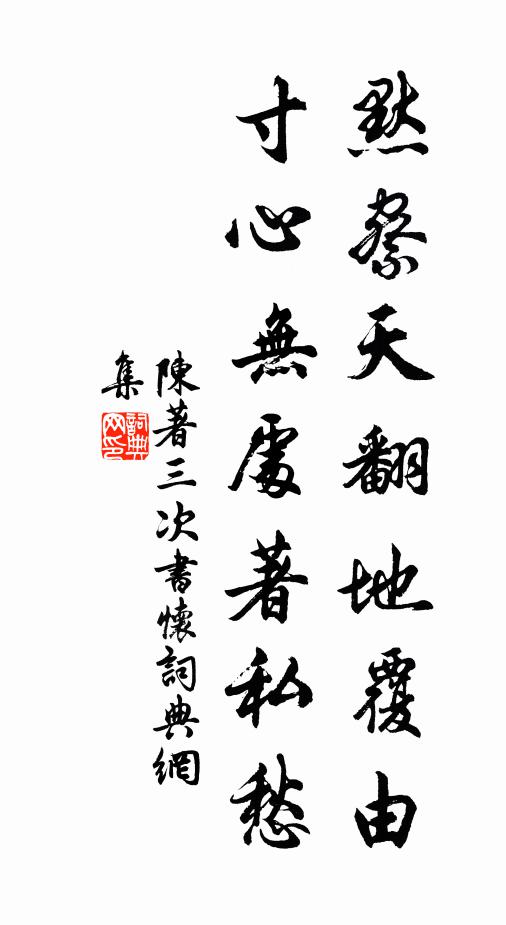 默察天翻地覆由
寸心無處著私愁
陳著三次書懷詞典網
集
詞典網印